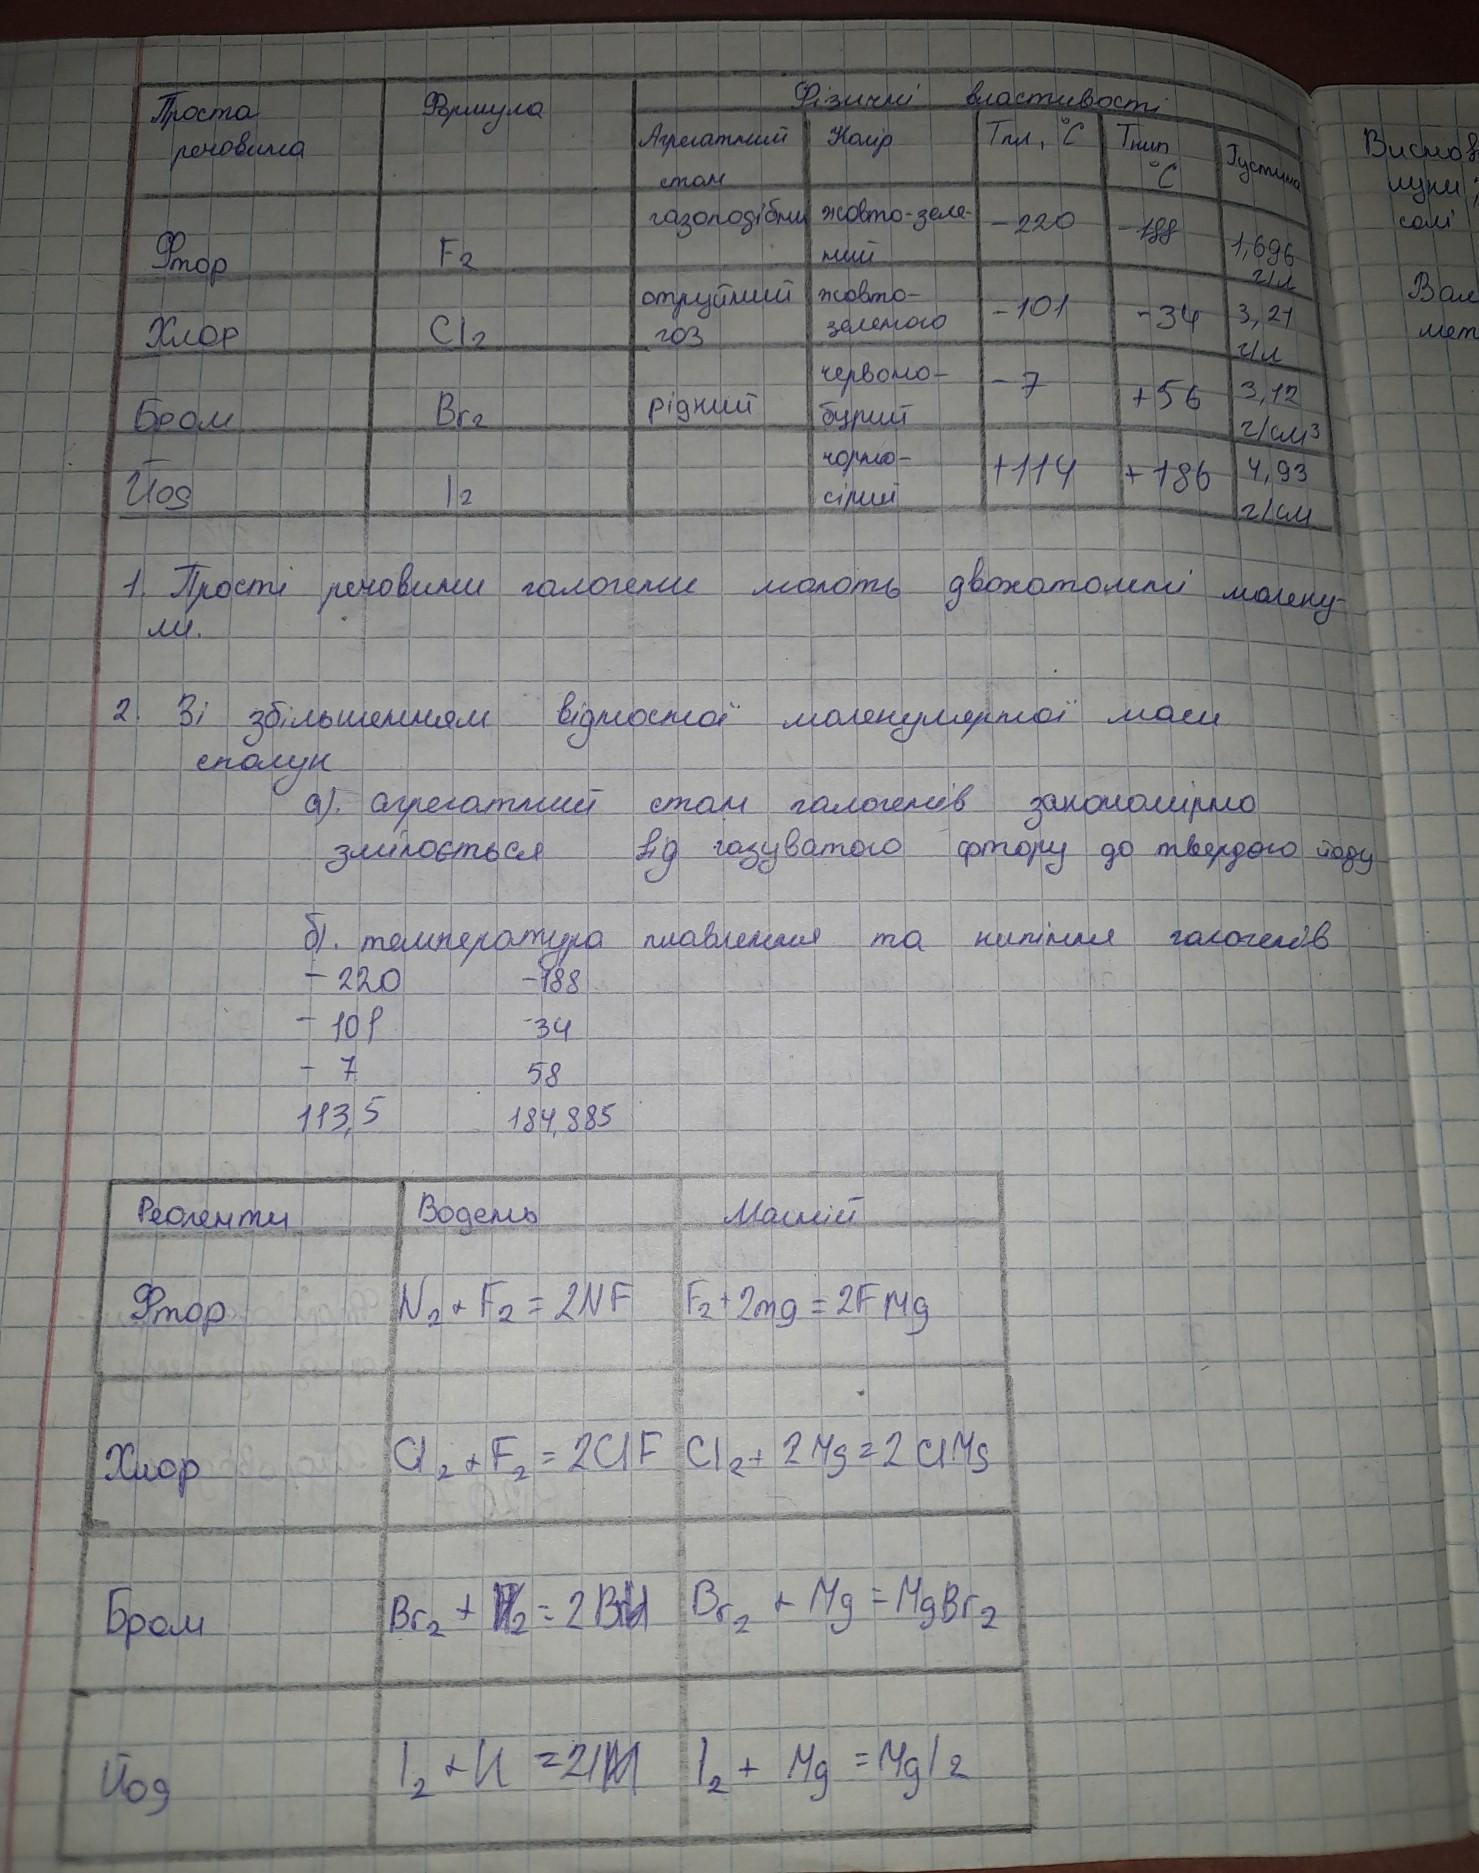 Проста речовина Формула Фізичні властивості
Агрегатний стан Колір Тпл, °C Ткип °C Густина
Фтор F2 газоподібний жовто-зелений -220 -188 1,696 г/л
Хлор Cl2 отруйний газ жовто-зеленого -101 -34 3,21 г/л
Бром Br2 рідкий червоно-бурий -7 +56 3,12 г/см3
Йод I2 чорно-сірий +114 +186 4,93 г/см
1. Прості речовини галогени мають двохатомні молеку-
ли.
2. Зі збільшенням відносної молекулярної маси
сполук
а). агрегатний стан галогенів закономірно
змінюється від газуватого фтору до твердого йоду
б). температура плавлення та кипіння галогенів
-220 -188
-101 -34
-7 58
113,5 184,885
Реагенти Водень Магній
Фтор N2 + F2 = 2NF F2 + 2mg = 2FMg
Хлор Cl2 + F2 = 2ClF Cl2 + 2Mg = 2ClMg
Бром Br2 + H2 = 2BrH Br2 + Mg = MgBr2
Йод I2 + H = 2IH I2 + Mg = MgI2
Виснов
луки;
солі
мет